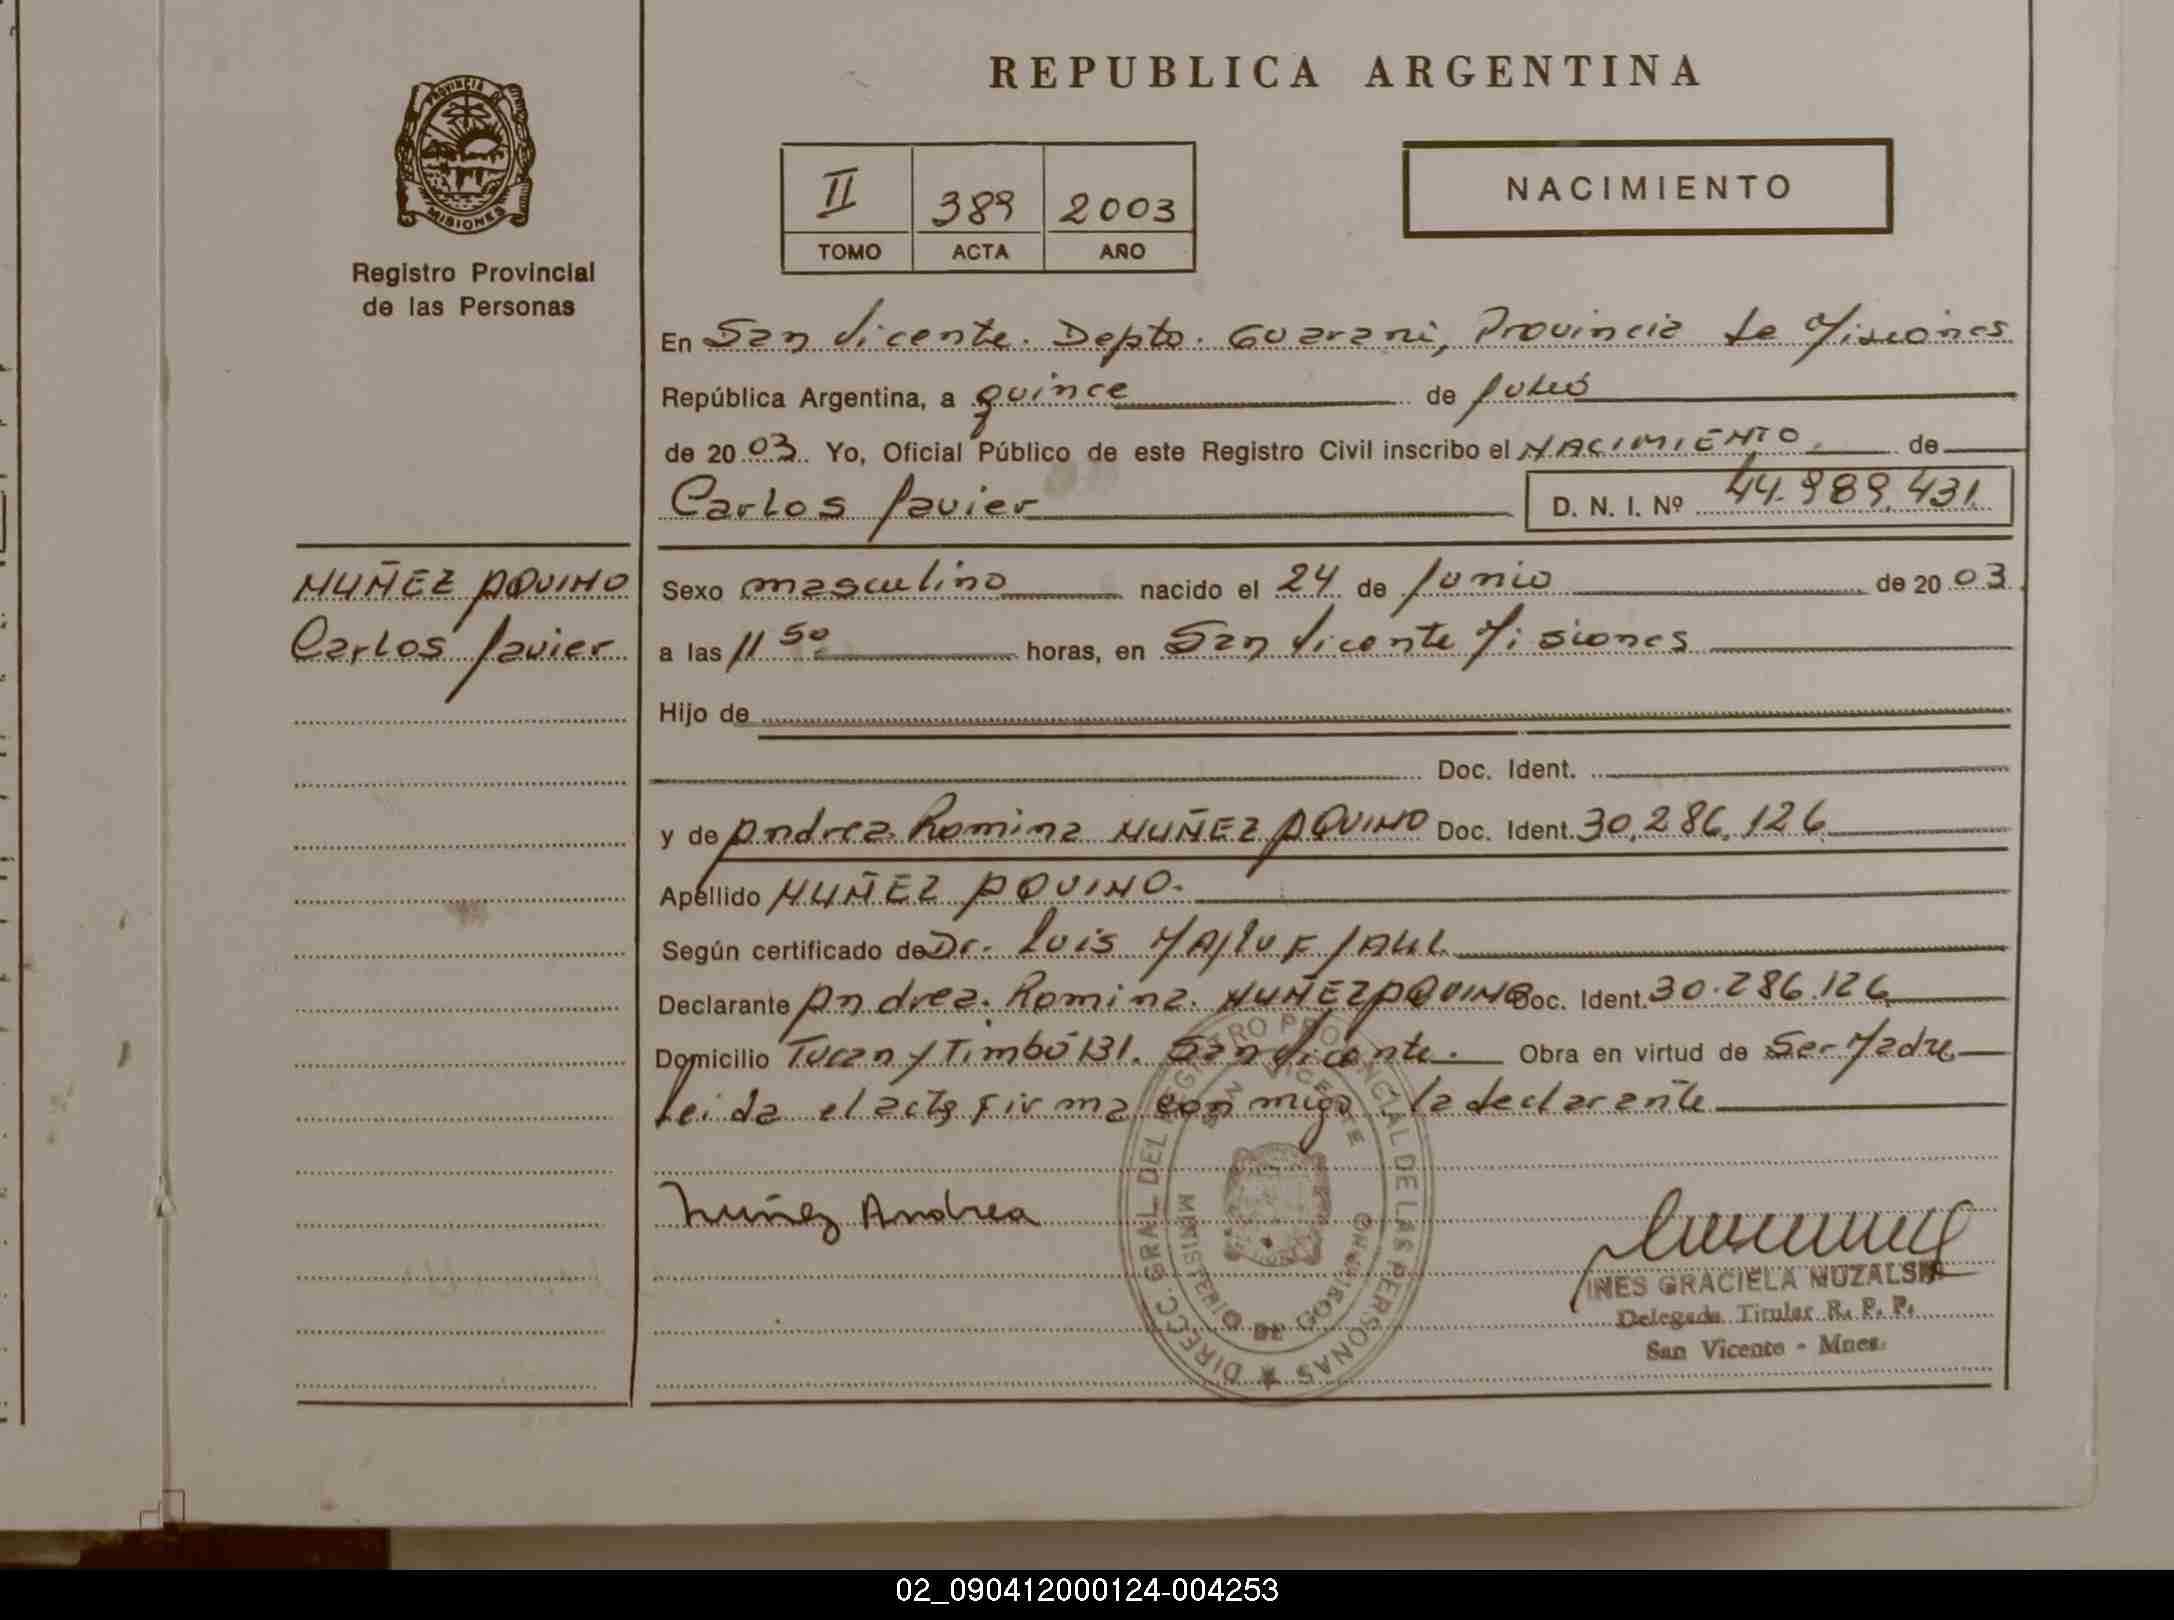 REPUBLICA ARGENTINA
PROVINCIA DE
MISIONES
Registro Provincial
de las Personas
II 389 2003
TOMO ACTA AÑO
NACIMIENTO
En San Vicente. Depto. Guarani, Provincia de Misiones
República Argentina, a quince de Julio
de 2003. Yo, Oficial Público de este Registro Civil inscribo el NACIMIENTO. de
Carlos Javier D. N. I. Nº 44.989.431.
NUÑEZ AQUINO
Carlos Javier
Sexo masculino nacido el 24 de Junio de 2003.
a las 11 50 horas, en San Vicente Misiones
Hijo de
Doc. Ident.
y de Andrea Romina NUÑEZ AQUINO Doc. Ident. 30.286.126
Apellido NUÑEZ AQUINO.
Según certificado de Dr. Luis
Declarante Andrea. Romina. NUÑEZ AQUINO Doc. Ident. 30.286.126
Domicilio Tucan y Timbó 131. San Vicente. Obra en virtud de Ser Madre
Leida el acta firma conmigo la declarante
Nuñez Andrea
DIRECC. GRAL. DEL REGISTRO PROVINCIAL DE LAS PERSONAS
SAN VICENTE
MINISTERIO DE GOBIERNO
INES GRACIELA MUZALSKI
Delegada Titular R. P. P.
San Vicente - Mnes.
02_090412000124-004253